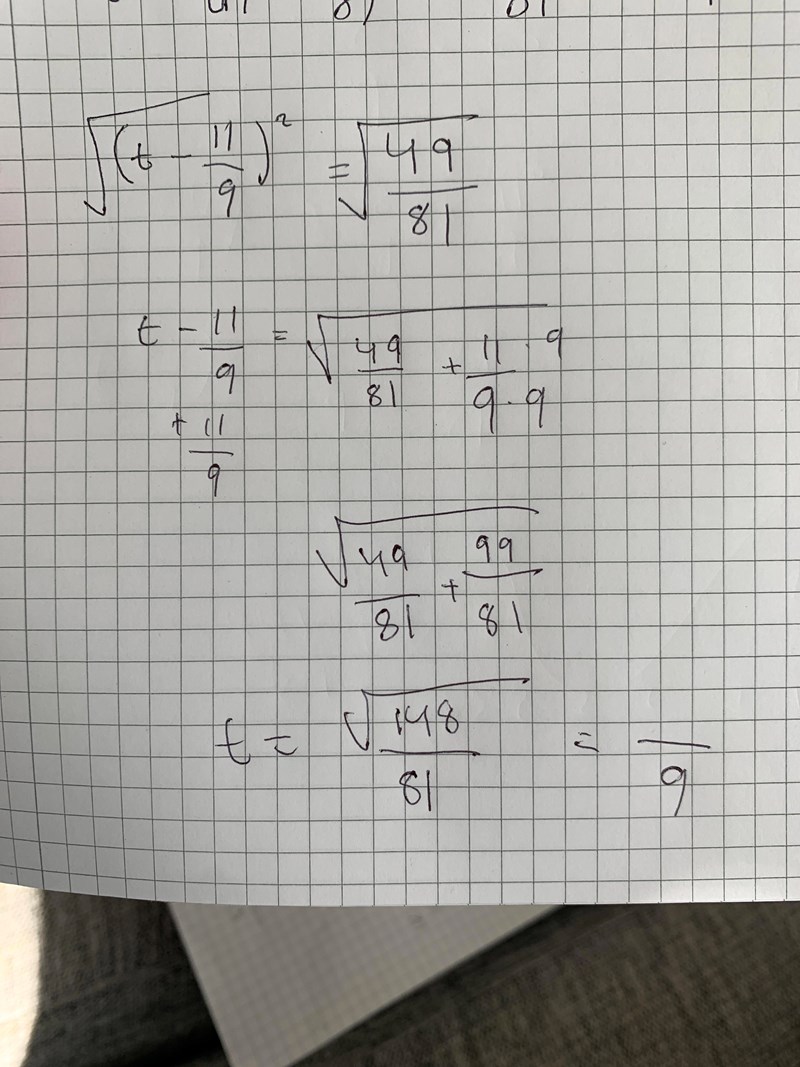 √(t - 11/9)² = √49/81
t - 11/9 = √49/81 + 11·9/9·9
+ 11/9
√49/81 + 99/81
t = √148/81 = /9